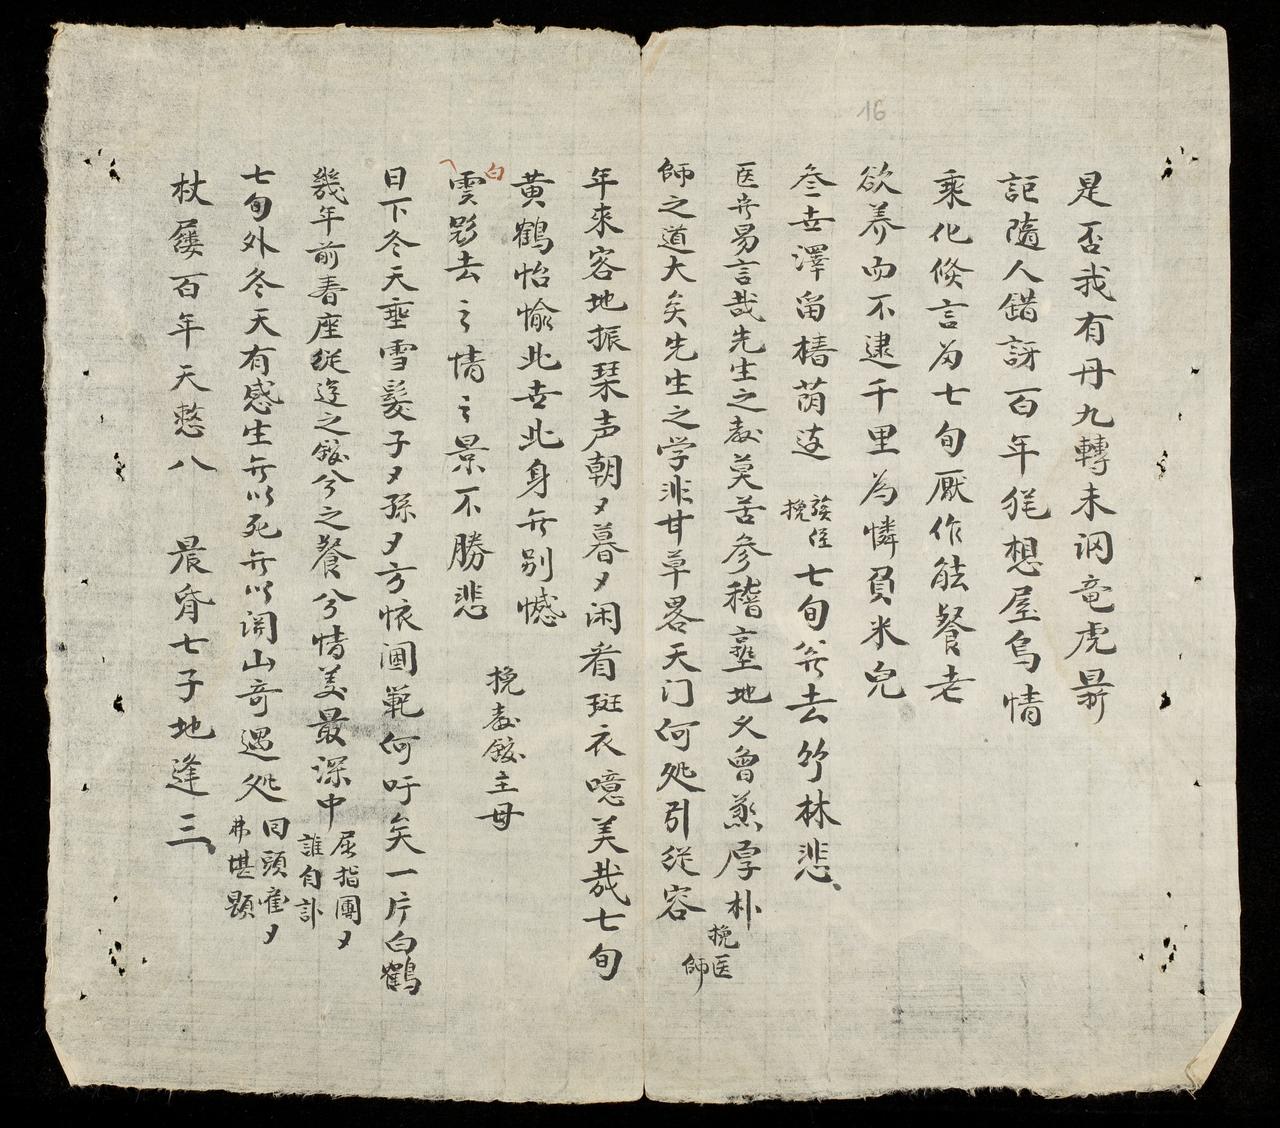 16
是否我有丹九轉未泂竜虎鼎
詎隨人錯訝百年徃想屋烏情
乘化倏言为七旬厭作䏻餐老
欲养而不逮千里為憐負米兒
叁世澤畄椿荫迲 挽 七旬旡去竹林悲
医旡易言哉先生之教莫苦参稽墬地乂曾蒸厚朴 挽医師
師之道大矣先生之学非甘草畧天门何処引従容
年來客地振琹声朝々暮々闲看斑衣噫美哉七旬
黄鶴怡愉此世此身旡别憾 挽教䤋主母
白雲影去〻情〻景不勝悲
日下冬天垂雪髮子々孫々方懐閫範何吁矣一片白鶴
幾年前春座従迋之䤋兮之餐兮情美最深中 屈指團々誰自訃
七旬外冬天有感生旡以死旡以関山奇遇処 回頭隺々弗堪題
杖屨百年天憗八 晨昏七子地逢三